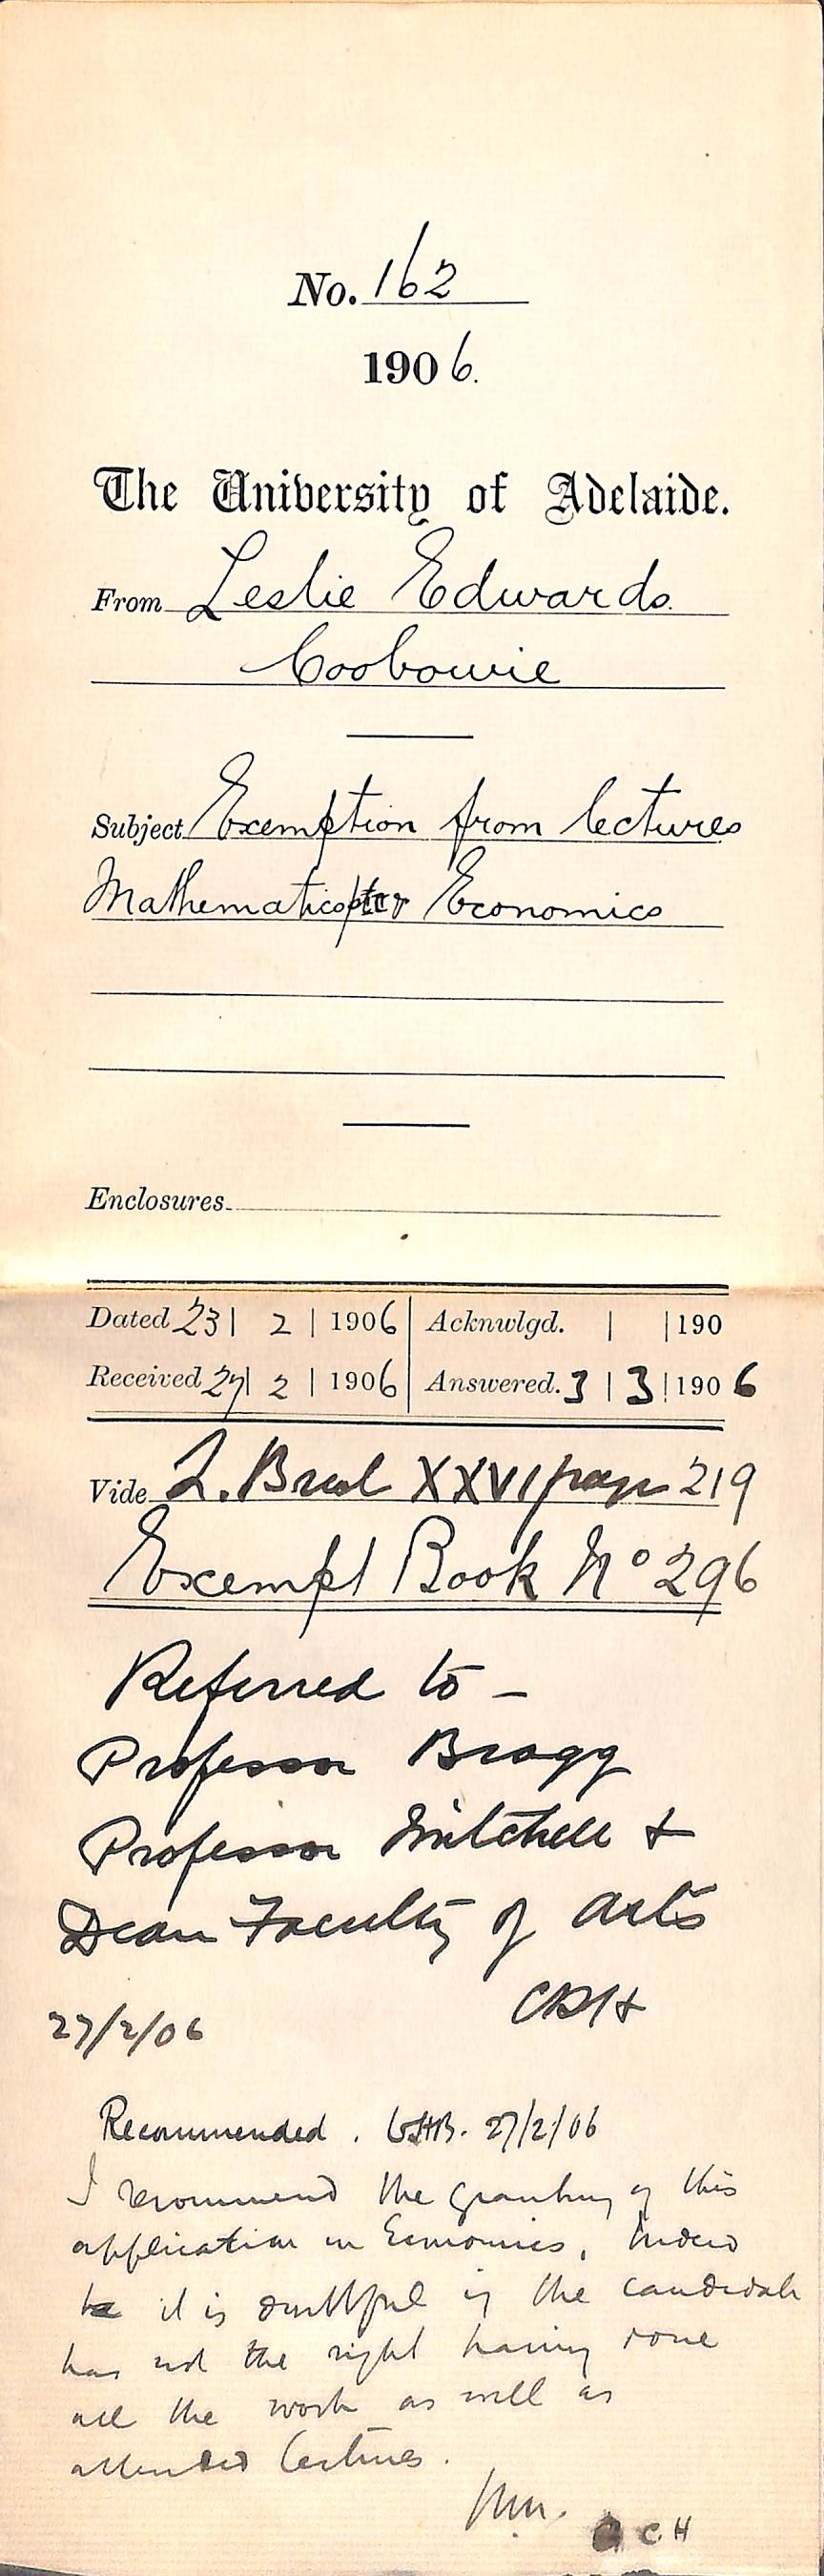 No. 162
1906.
The University of Adelaide.
From Leslie Edwards
Coobowie
Subject Exemption from lectures
Mathematics Economics
Enclosures
Dated 23 | 2 | 1906 Acknwlgd. | | 190
Received 27 | 2 | 1906 Answered. 3 | 3 | 1906
Vide L. XXVI page 219
Exempt Book No 296
Referred to –
Professor Bragg
Professor Mitchell &
Dean Faculty of Arts
27/2/06 CRH
Recommended. WHB. 27/2/06
I recommend the granting of this
application in Economics, Indeed
it is doubtful if the candidate
has not the right having done
all the work as well as
attended lectures.
WM.
CH